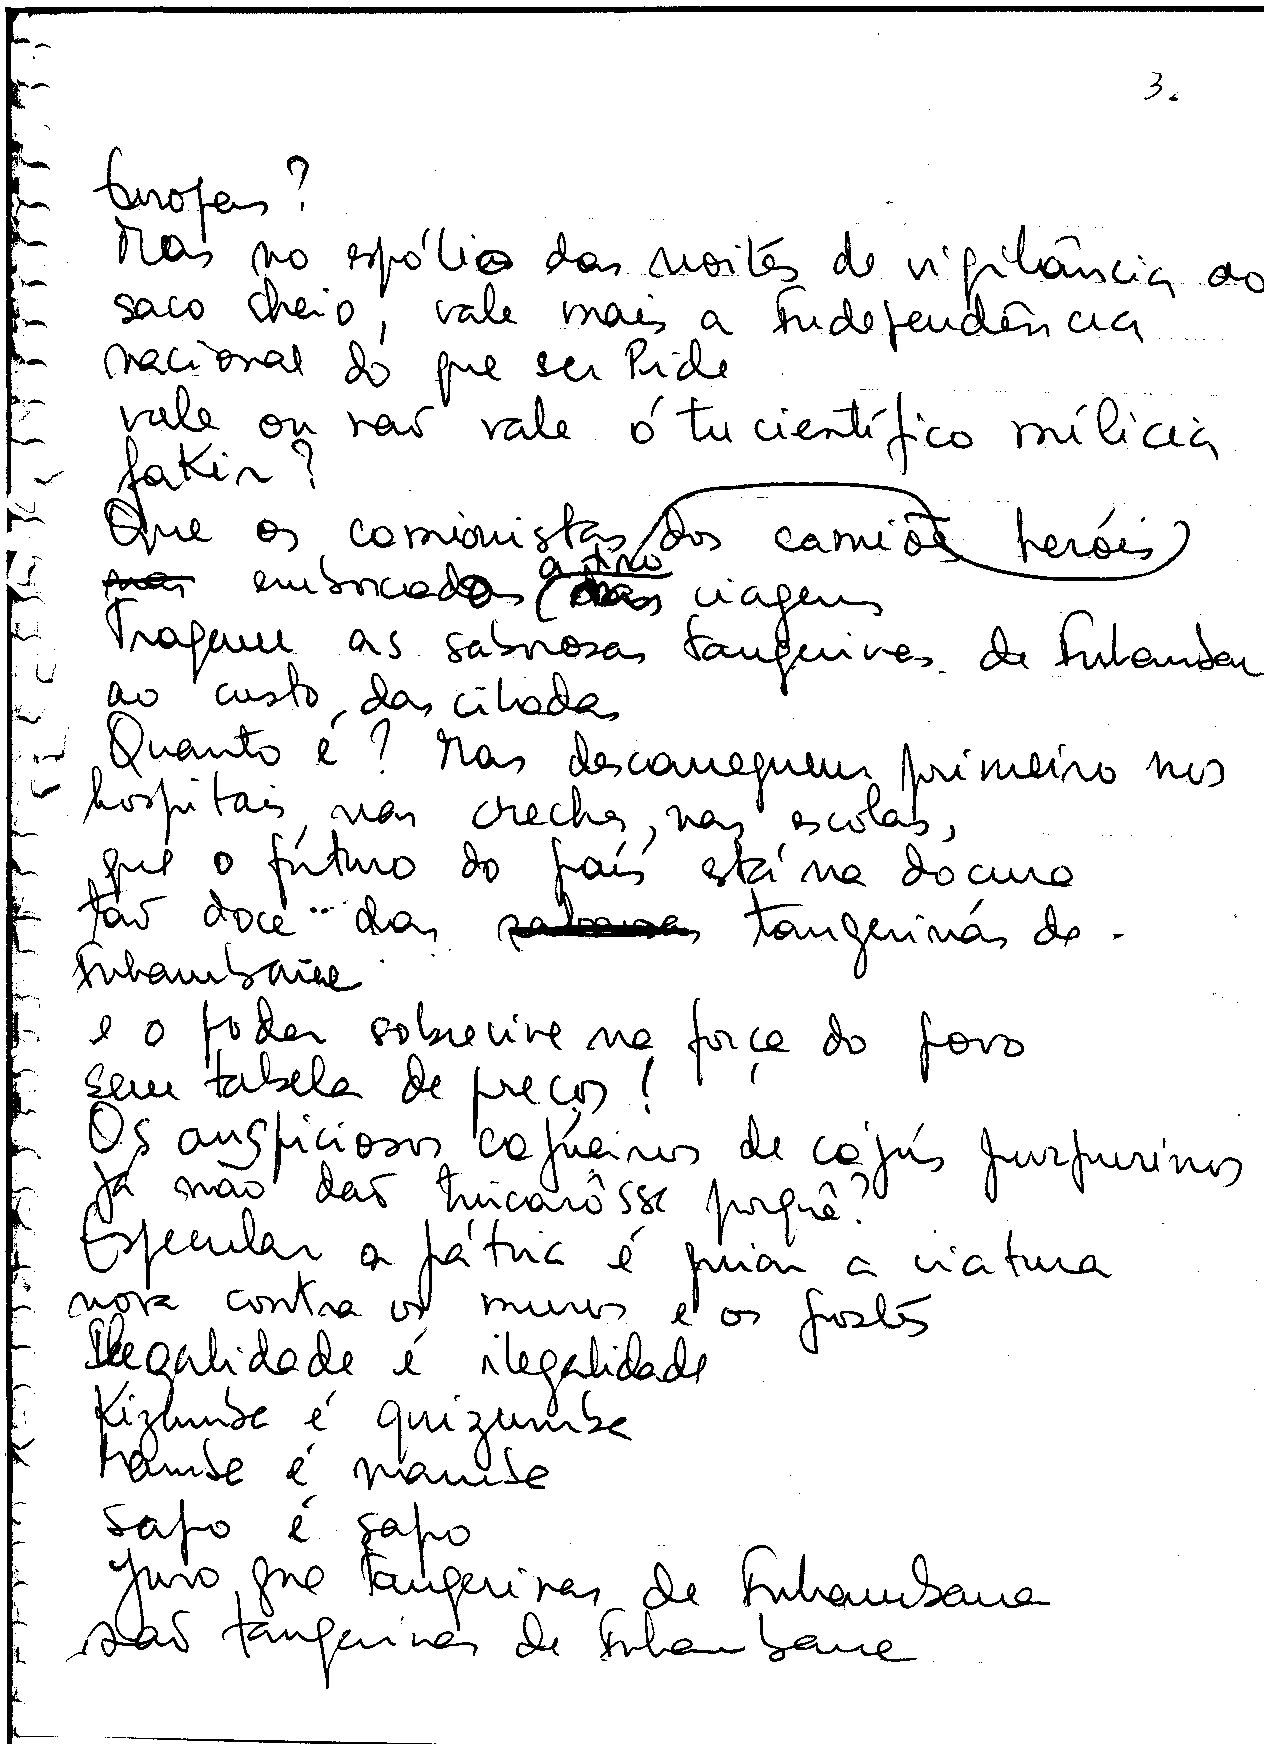 3.
Europeu?
Mas no espólio das noites de vigilância ao
saco cheio, vale mais a Independência
nacional do que ser Pide
vale ou não vale ó tu científico milícia
fakir?
Que os camionistas dos camiões heróis
emboscados a tiro viagens
Tragam as saborosas tangerinas de Inhamban
ao custo das ciladas
Quanto é? Mas descarreguem primeiro nos
hospitais, nas creches, nas escolas,
que o futuro do país está na doçura
tão doce das tangerinas de
Inhambane
e o poder sobrevive na força do povo
sem tabela de preços!
Os auspiciosos cajueiros de cajús purpurinos
já não dão tincarôsse porquê?
Especular a pátria é puiar a viatura
nova contra os muros e os postes
Ilegalidade é ilegalidade
Kizumba é quizumba
Mamba é mamba
sapo é sapo
Juro que tangerinas de Inhambane
são tangerinas de Inhambane